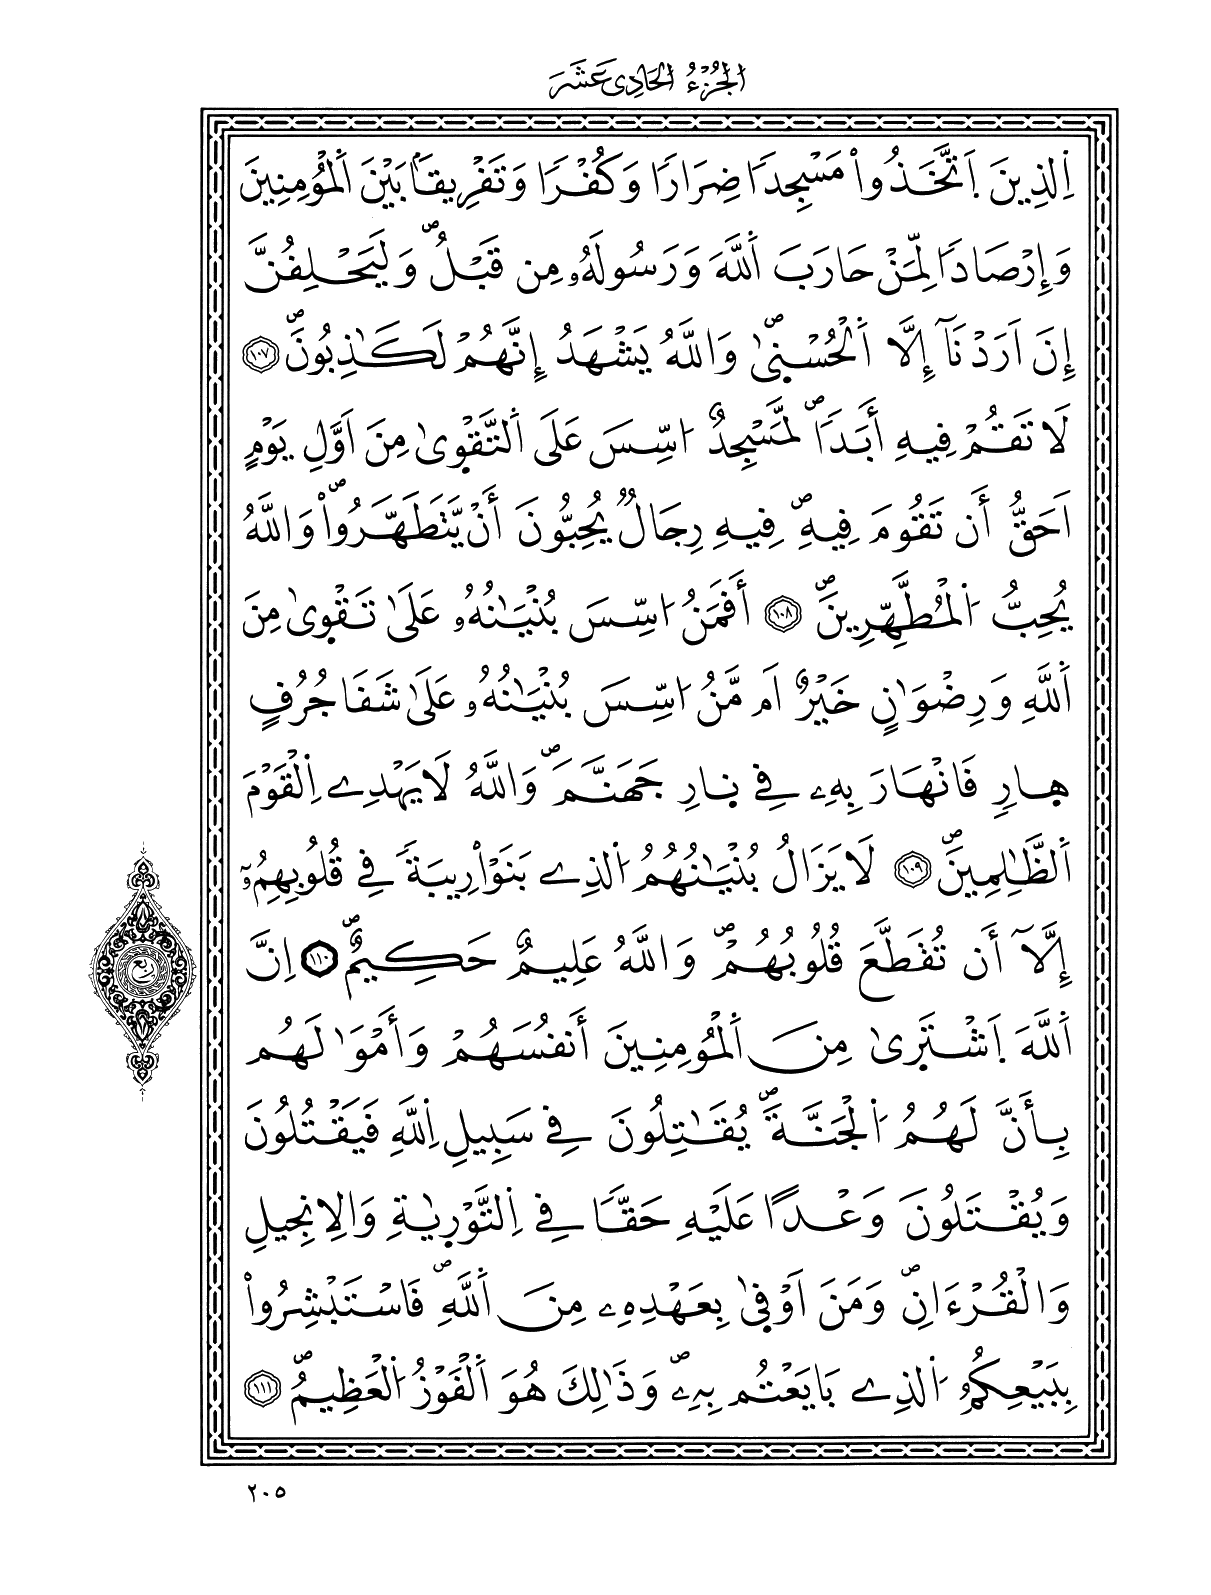 الجزء الحادي عشر
اِ۬لذِينَ اَ۪تَّخَذُواْ مَسْجِداٗ ضِرَاراٗ وَكُفْراٗ وَتَفْرِيقاَۢ بَيْنَ اَ۬لْمُؤْمِنِينَ
وَإِرْصَاداٗ لِّمَنْ حَارَبَ اَ۬للَّهَ وَرَسُولَهُۥ مِن قَبْلُۖ وَلَيَحْلِفُنَّ
إِنَ اَرَدْنَآ إِلَّا اَ۬لْحُسْنۭىٰ وَاللَّهُ يَشْهَدُ إِنَّهُمْ لَكَٰذِبُونَۖ ١٠٧
لَا تَقُمْ فِيهِ أَبَداٗۖ لَّمَسْجِدٌ ا۟سِّسَ عَلَى اَ۬لتَّقْوۭىٰ مِنَ اَوَّلِ يَوْمٍ
اَحَقُّ أَن تَقُومَ فِيهِۖ فِيهِ رِجَالٞ يُحِبُّونَ أَنْ يَّتَطَهَّرُواْۖ وَاللَّهُ
يُحِبُّ اُ۬لْمُطَّهِّرِينَۖ ١٠٨ أَفَمَنُ ا۟سِّسَ بُنْيَٰنُهُۥ عَلَىٰ تَقْوۭىٰ مِنَ
اَ۬للَّهِ وَرِضْوَٰنٍ خَيْرٌ اَم مَّنُ ا۟سِّسَ بُنْيَٰنُهُۥ عَلَىٰ شَفَا جُرُفٍ
ه۪ارٖ فَانْهَارَ بِهِۦ فِے ن۪ارِ جَهَنَّمَۖ وَاللَّهُ لَا يَهْدِے اِ۬لْقَوْمَ
اَ۬لظَّٰلِمِينَۖ ١٠٩ لَا يَزَالُ بُنْيَٰنُهُمُ اُ۬لذِے بَنَوْاْ رِيبَةٗ فِے قُلُوبِهِمُۥٓ
إِلَّآ أَن تُقَطَّعَ قُلُوبُهُمْۖ وَاللَّهُ عَلِيمٌ حَكِيمٌۖ ١١٠ اِنَّ
اَ۬للَّهَ اَ۪شْتَر۪ىٰ مِنَ اَ۬لْمُؤْمِنِينَ أَنفُسَهُمْ وَأَمْوَٰلَهُم
بِأَنَّ لَهُمُ اُ۬لْجَنَّةَۖ يُقَٰتِلُونَ فِے سَبِيلِ اِ۬للَّهِ فَيَقْتُلُونَ
وَيُقْتَلُونَ وَعْداً عَلَيْهِ حَقّاٗ فِے اِ۬لتَّوْر۪ىٰةِ وَالِانجِيلِ
وَالْقُرْءَانِۖ وَمَنَ اَوْفۭىٰ بِعَهْدِهِۦ مِنَ اَ۬للَّهِۖ فَاسْتَبْشِرُواْ
بِبَيْعِكُمُ اُ۬لذِے بَايَعْتُم بِهِۦۖ وَذَٰلِكَ هُوَ اَ۬لْفَوْزُ اُ۬لْعَظِيمُۖ ١١١
ربع
٢٠٥